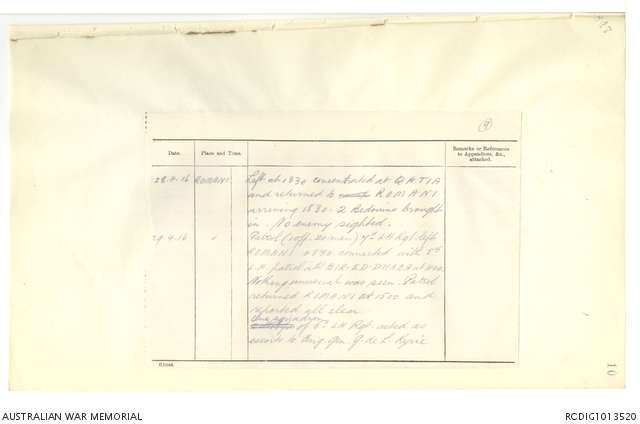 (9)
Date.
Place and Time.
Remarks or References
to Appendices, &c.,
attached.
28.4.16 ROMANI Left at 1330 concentrated at QATIA
and returned to ROMANI
arriving 1830. 2 Bedouins brought
in. No enemy sighted.
29.4.16 " Patrol (1 off. 20 men) 7th LH Rgt left
ROMANI 0530 connected with 5th
L.H. patrol at BIR ED DUEDAR at
Nothing unusual was seen. Patrol
returned ROMANI at 1500 and
reported all clear
One squadron
of 6th LH Rgt acted as
escorts to Brig Gen G de L Ryrie
10
AUSTRALIAN WAR MEMORIAL
RCDIG1013520